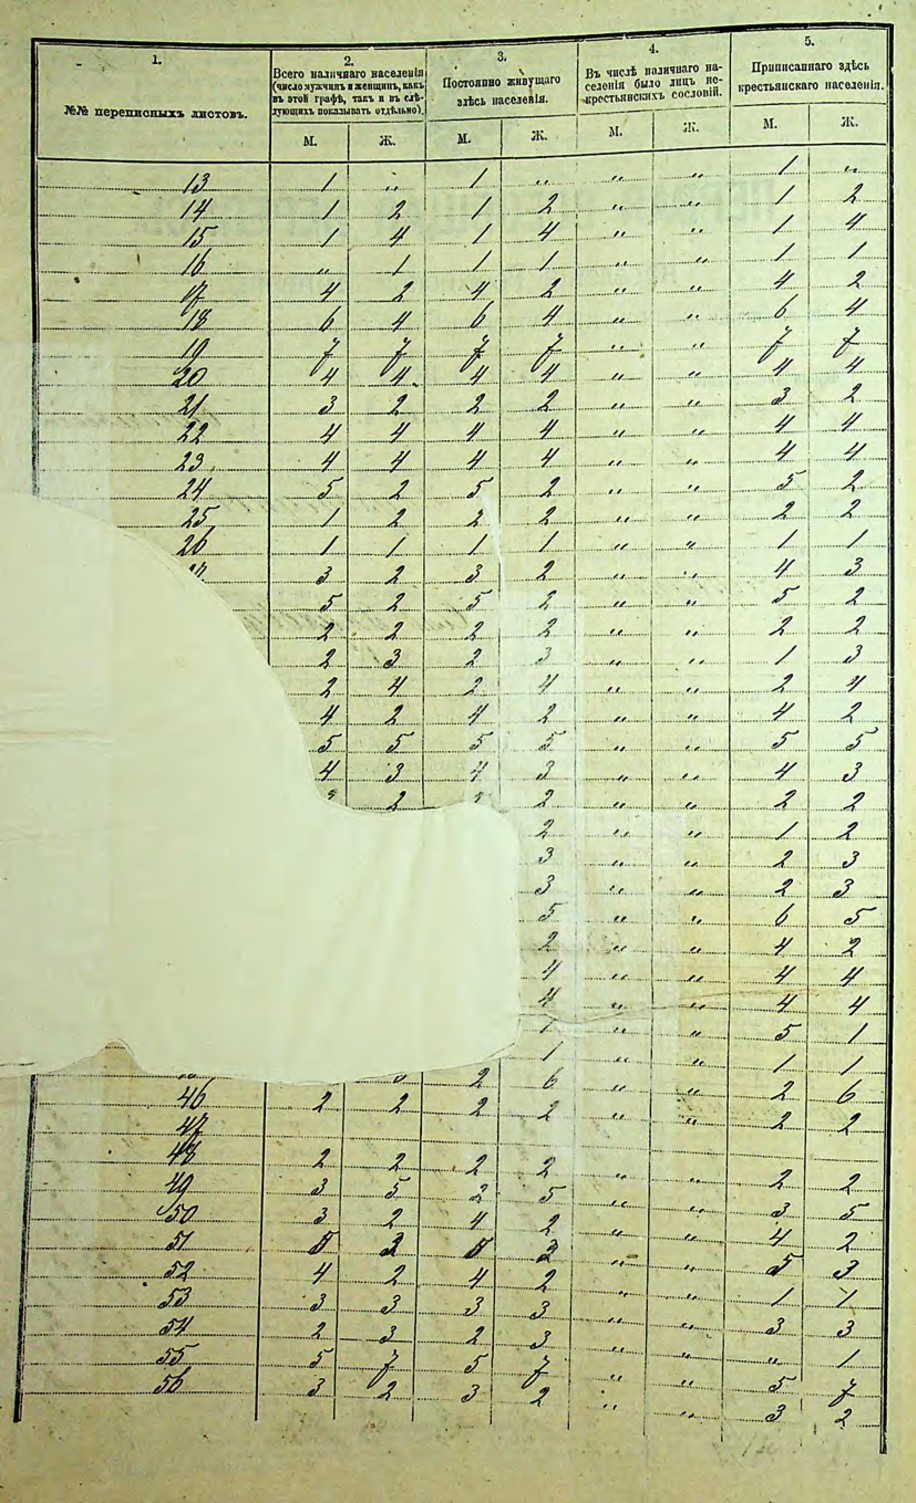 1. 2. 3. 4. 5.
№№ переписныхъ листовъ.
Всего наличнаго населенія
(число мужчинъ и женщинъ, какъ
въ этой графѣ, такъ и въ слѣ-
дующихъ показывать отдѣльно).
Постоянно живущаго
здѣсь населенія.
Въ числѣ наличнаго на-
селенія было лицъ не-
крестьянскихъ сословій.
Приписаннаго здѣсь
крестьянскаго населенія.
М. Ж. М. Ж. М. Ж. М. Ж.
13 1 „ 1 „ „ „ 1 „
14 1 2 1 2 „ „ 1 2
15 1 4 1 4 „ „ 1 4
16 „ 1 1 1 „ „ 1 1
17 4 2 4 2 „ „ 4 2
18 6 4 6 4 „ „ 6 4
19 7 7 7 7 „ „ 7 7
20 4 4 4 4 „ „ 4 4
21 3 2 2 2 „ „ 3 2
22 4 4 4 4 „ „ 4 4
23 4 4 4 4 „ „ 4 4
24 5 2 5 2 „ „ 5 2
25 1 2 2 2 „ „ 2 2
26 1 1 1 1 „ „ 1 1
3 2 3 2 „ „ 4 3
5 2 5 2 „ „ 5 2
2 2 2 2 „ „ 2 2
2 3 2 3 „ „ 1 3
2 4 2 4 „ „ 2 4
4 2 4 2 „ „ 4 2
5 5 5 5 „ „ 5 5
4 3 4 3 „ „ 4 3
2 2 „ „ 2 2
2 „ „ 1 2
3 „ „ 2 3
3 „ „ 2 3
5 „ „ 6 5
2 „ „ 4 2
4 „ „ 4 4
4 „ „ 4 4
1 „ „ 5 1
1 „ „ 1 1
2 6 „ „ 2 6
46 2 2 2 2 „ „ 2 2
47
48 2 2 2 2 „ „ 2 2
49 3 5 2 5 „ „ 3 5
50 3 2 4 2 „ „ 4 2
51 5 3 5 3 „ „ 5 3
52 4 2 4 2 „ „ 1 1
53 3 3 3 3 „ „ 3 3
54 2 3 2 3 „ „ „ 1
55 5 7 5 7 „ „ 5 7
56 3 2 3 2 „ „ 3 2